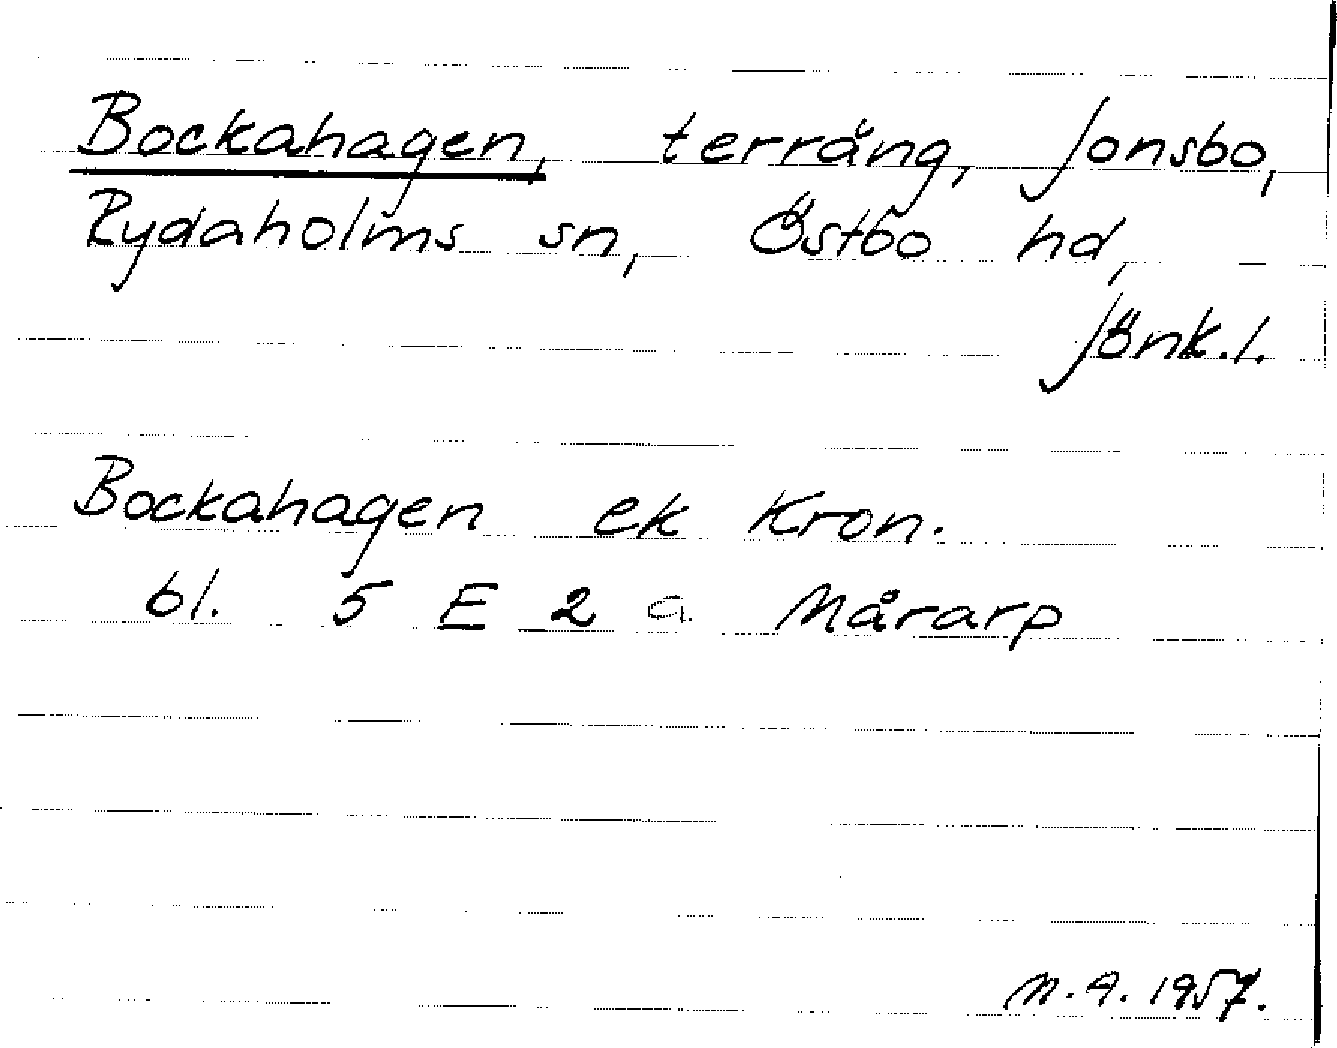 Bockahagen, terräng, Jonsbo,
Rydaholms sn, Östbo hd,
Jönk.l.
Bockahagen ek Kron.
bl. 5 E 2 a Mårarp
M.A. 1957.